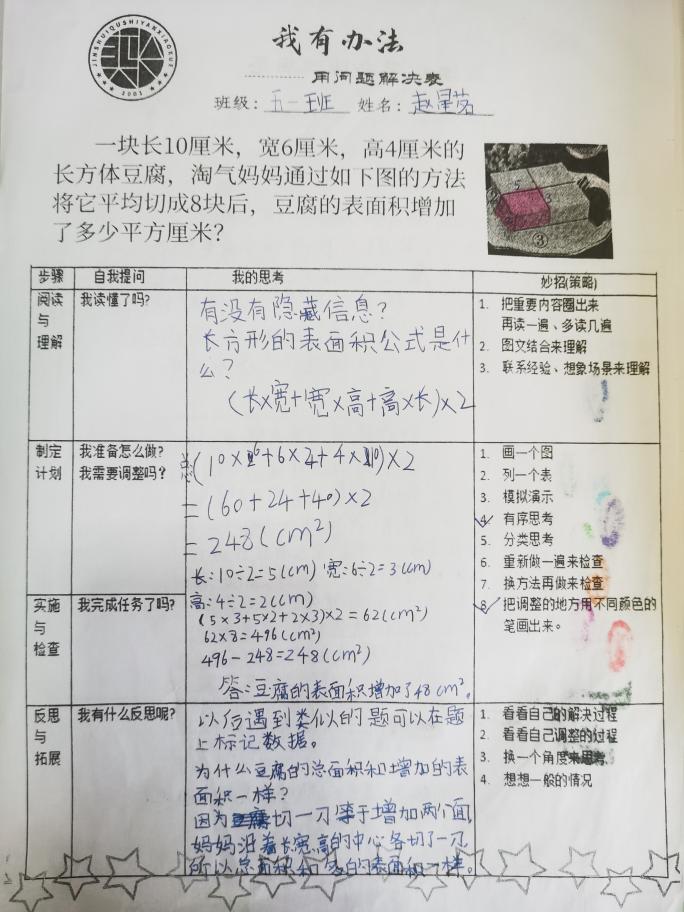 JINSHUIQUSHIYANXIAOXUE
2003
我有办法
用问题解决表
班级：五一班 姓名：赵星茗
一块长10厘米，宽6厘米，高4厘米的
长方体豆腐，淘气妈妈通过如下图的方法
将它平均切成8块后，豆腐的表面积增加
了多少平方厘米？
5
3
2
③
步骤 自我提问 我的思考 妙招(策略)
阅读
与
理解
我读懂了吗?
有没有隐藏信息？
长方形的表面积公式是什
么？
(长×宽+宽×高+高×长)×2
1. 把重要内容圈出来
再读一遍、多读几遍
2. 图文结合来理解
3. 联系经验、想象场景来理解
制定
计划
我准备怎么做?
我需要调整吗？
总(10×6+6×4+4×10)×2
=(60+24+40)×2
=248(cm²)
长:10÷2=5(cm) 宽:6÷2=3(cm)
1. 画一个图
2. 列一个表
3. 模拟演示
4. 有序思考
5. 分类思考
6. 重新做一遍来检查
7. 换方法再做来检查
8. 把调整的地方用不同颜色的
笔画出来。
实施
与
检查
我完成任务了吗?
高:4÷2=2(cm)
(5×3+5×2+2×3)×2=62(cm²)
62×8=496(cm²)
496-248=248(cm²)
答:豆腐的表面积增加了48cm²。
反思
与
拓展
我有什么反思呢?
以后遇到类似的题可以在题
上标记数据。
为什么豆腐的总面积和增加的表
面积一样？
因为切一刀等于增加两个面,
妈妈沿着长宽高的中心各切了一刀,
所以总面积和多的表面积一样。
1. 看看自己的解决过程
2. 看看自己调整的过程
3. 换一个角度来思考
4. 想想一般的情况